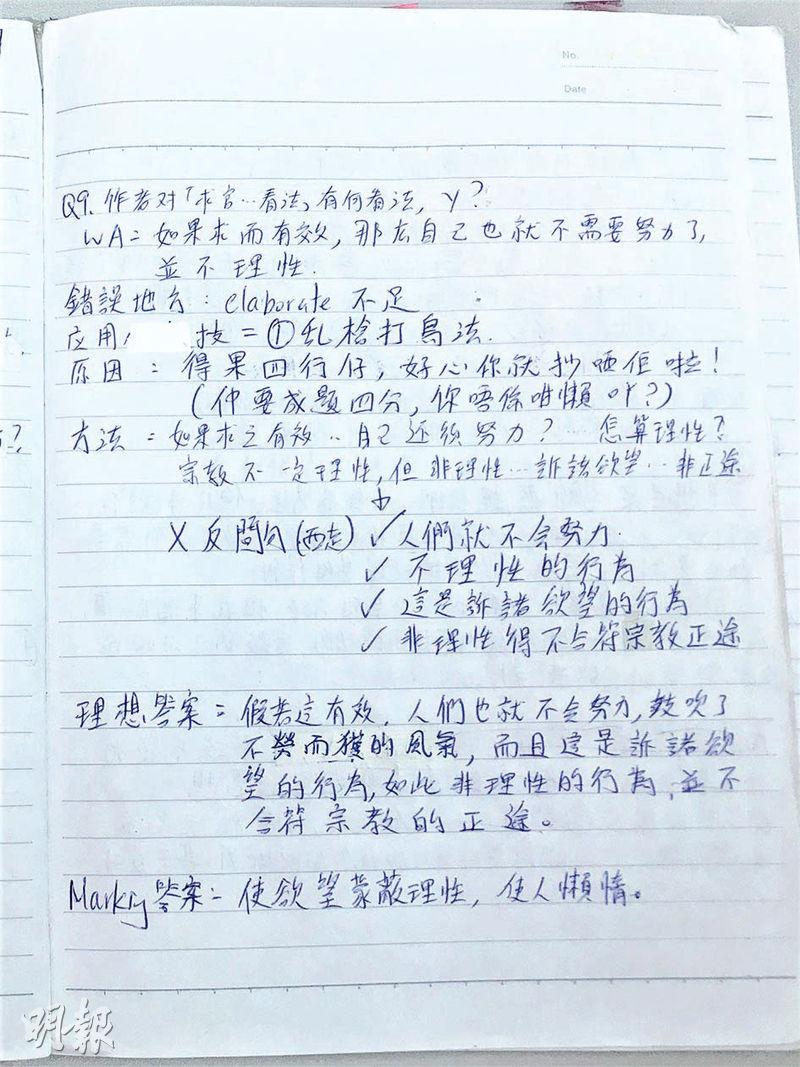 No.
Date
Q9. 作者对「求官…看法」有何看法, Y?
WA = 如果求而有效, 那広自己也就不需要努力了,
並不理性.
錯誤地方: elaborate 不足
应用 技 = ①乱槍打鳥法.
原因 : 得果四行仔, 好心你就抄晒佢啦!
(仲要成題四分, 你唔係咁懶吖?)
方法 = 如果求之有效‥自己还須努力? … 怎算理性?
宗教不一定理性, 但非理性…訴諸欲望…非正途
X 反問句(西走) ✓人們就不会努力.
✓ 不理性的行為
✓ 這是訴諸欲望的行為
✓ 非理性得不合符宗教正途
理想答案 = 假若这有效, 人們也就不会努力, 鼓吹了
不勞而獲的風氣, 而且這是訴諸欲
望的行為, 如此非理性的行為, 並不
合符宗教的正途。
Marking答案 = 使欲望蒙蔽理性, 使人懶惰。
明報